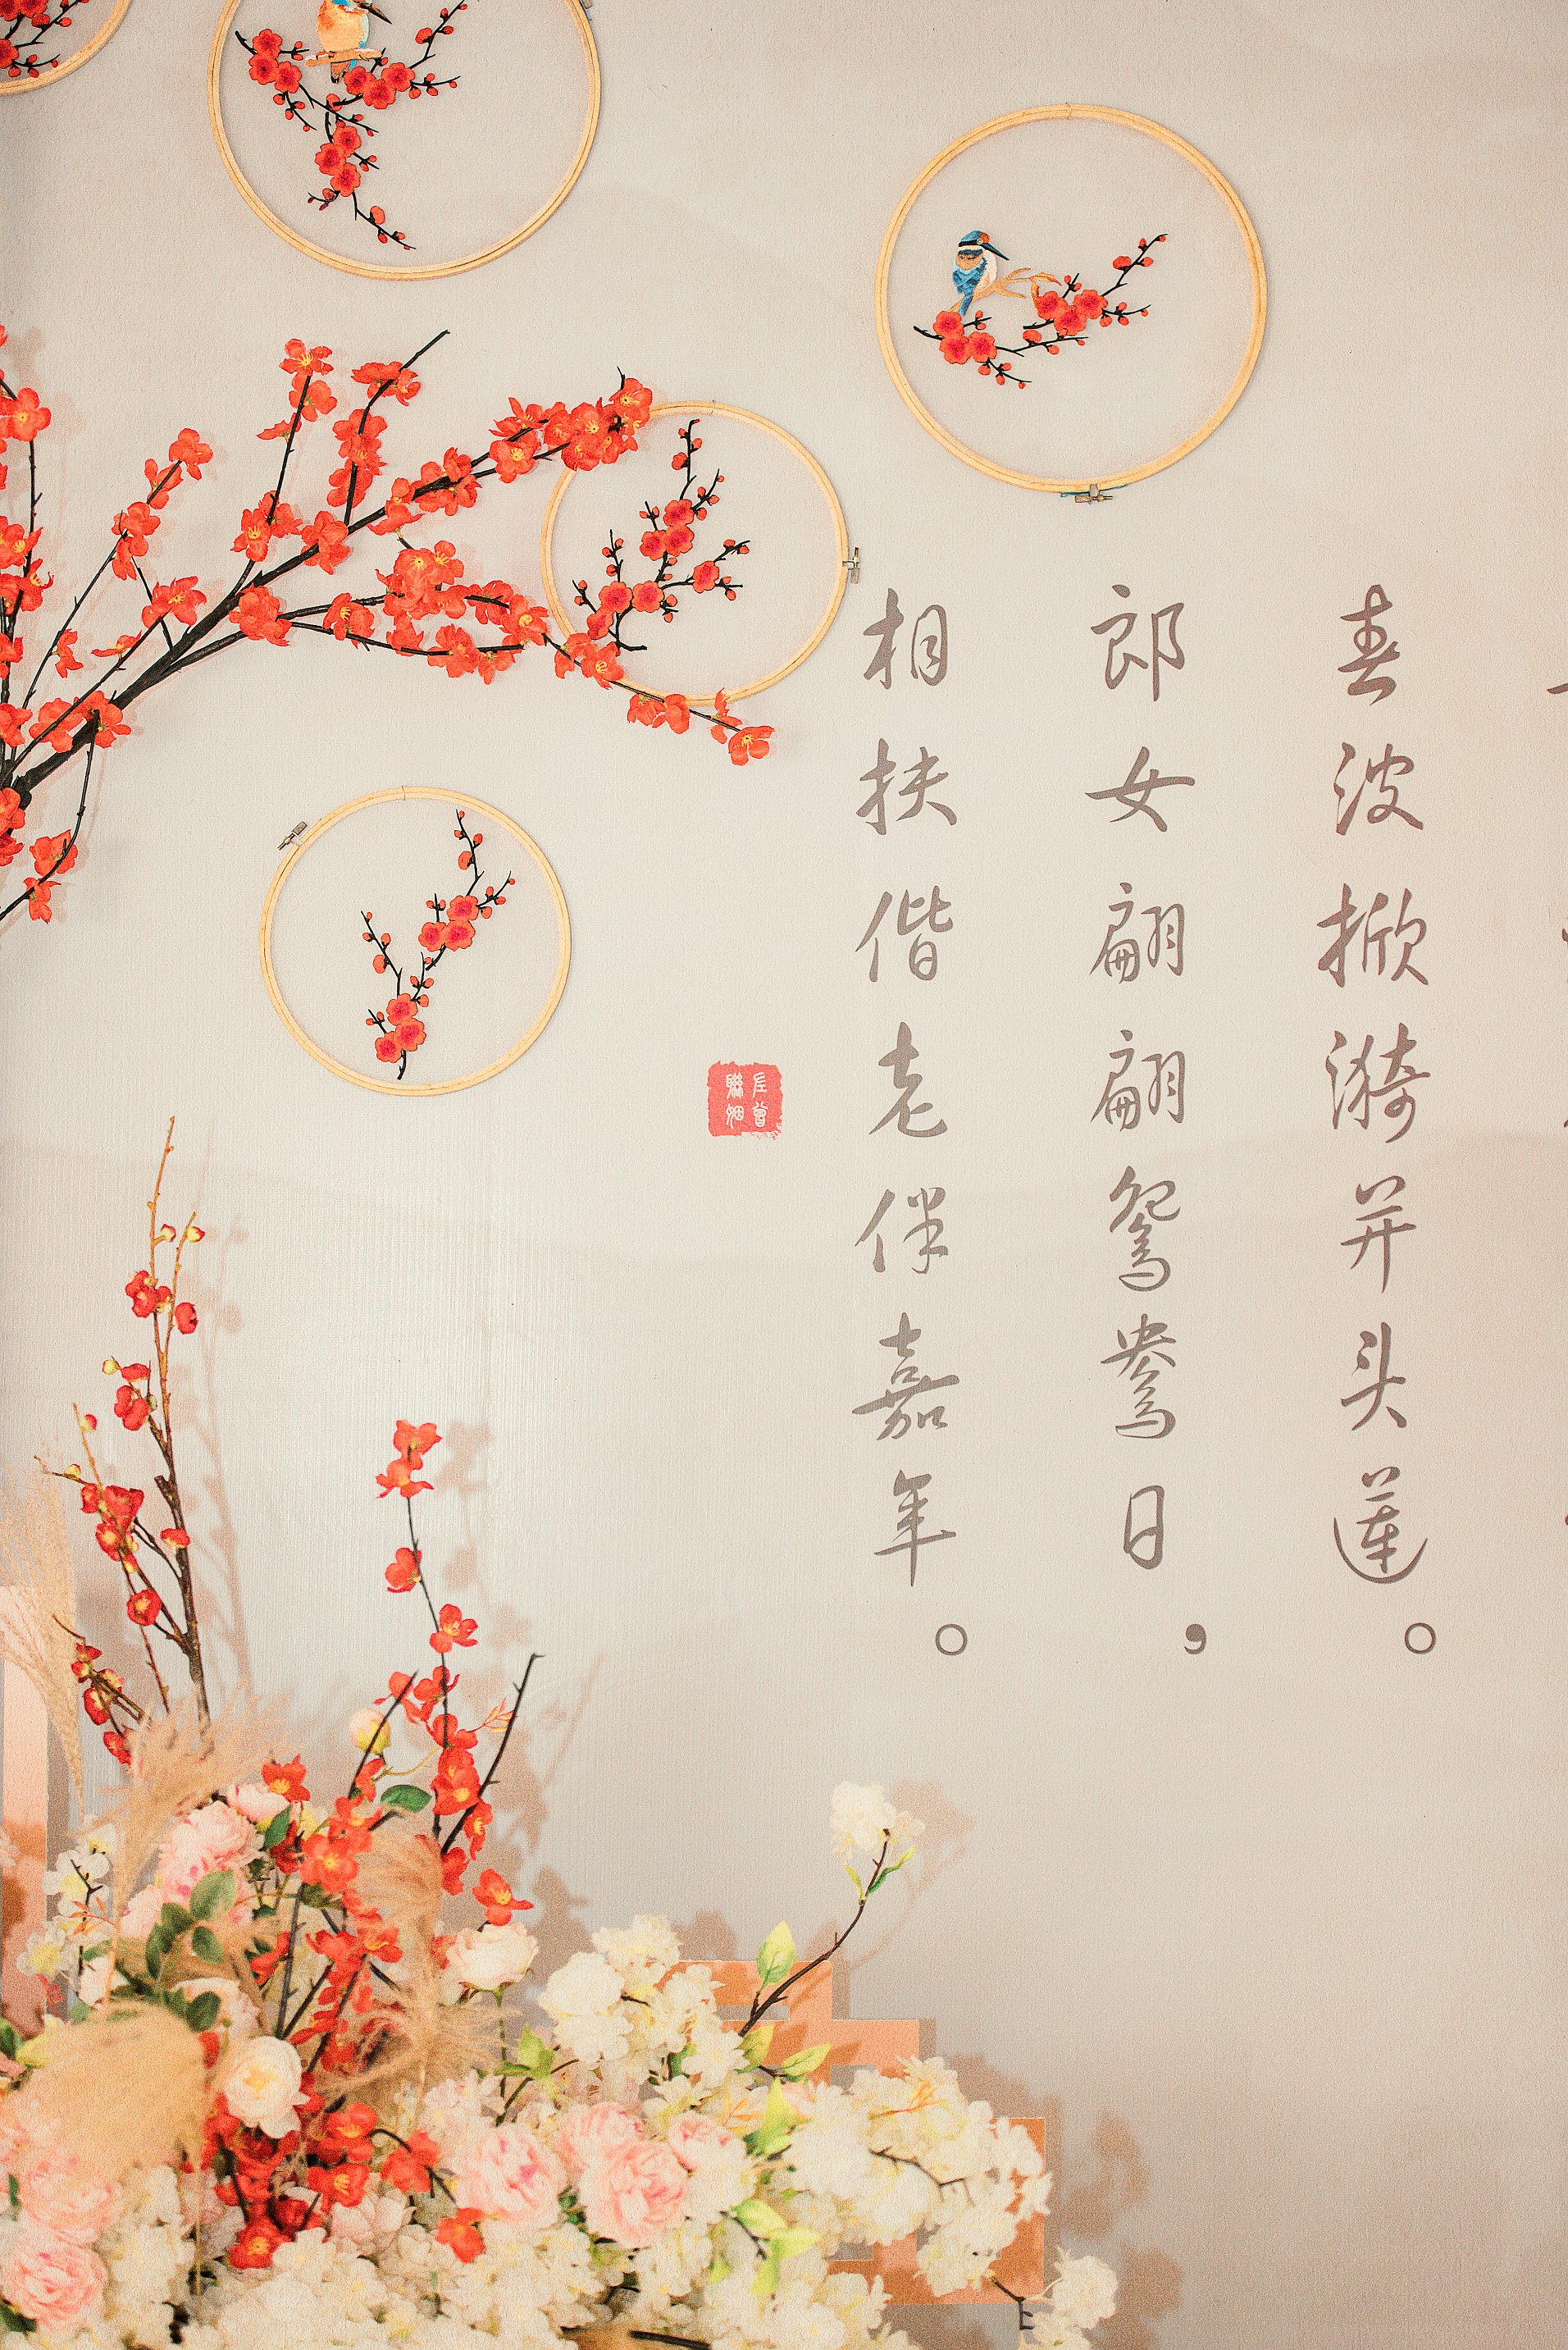 春波掀漪并头莲。
郎女翩翩鸳鸯日，
相扶偕老伴嘉年。